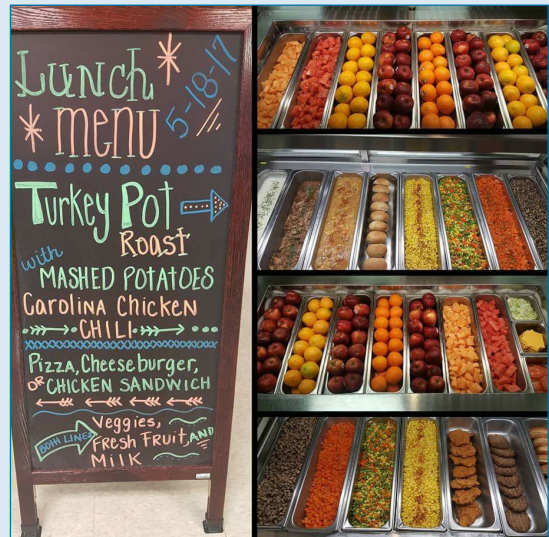 Lunch
menu
5-18-17
Turkey Pot
Roast
with
MASHED POTATOES
Carolina Chicken
CHILI
Pizza, Cheeseburger,
OR CHICKEN SANDWICH
BOTH LINES
Veggies,
Fresh Fruit, AND
Milk